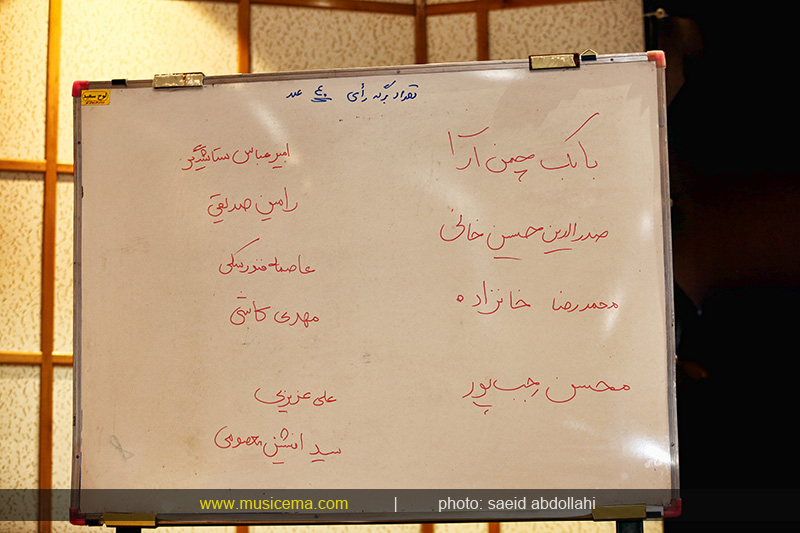 تعداد برگه رأی ۴۰ عدد
بابک چمن آرا
صدرالدین حسین خانی
محمدرضا خانزاده
محسن رجب پور
امیرعباس ستایشگر
رامین صدیقی
مهدی کاشی
علی عزیزی
سید افشین معصومی
لوح سعید
www.musicema.com | photo: saeid abdollahi